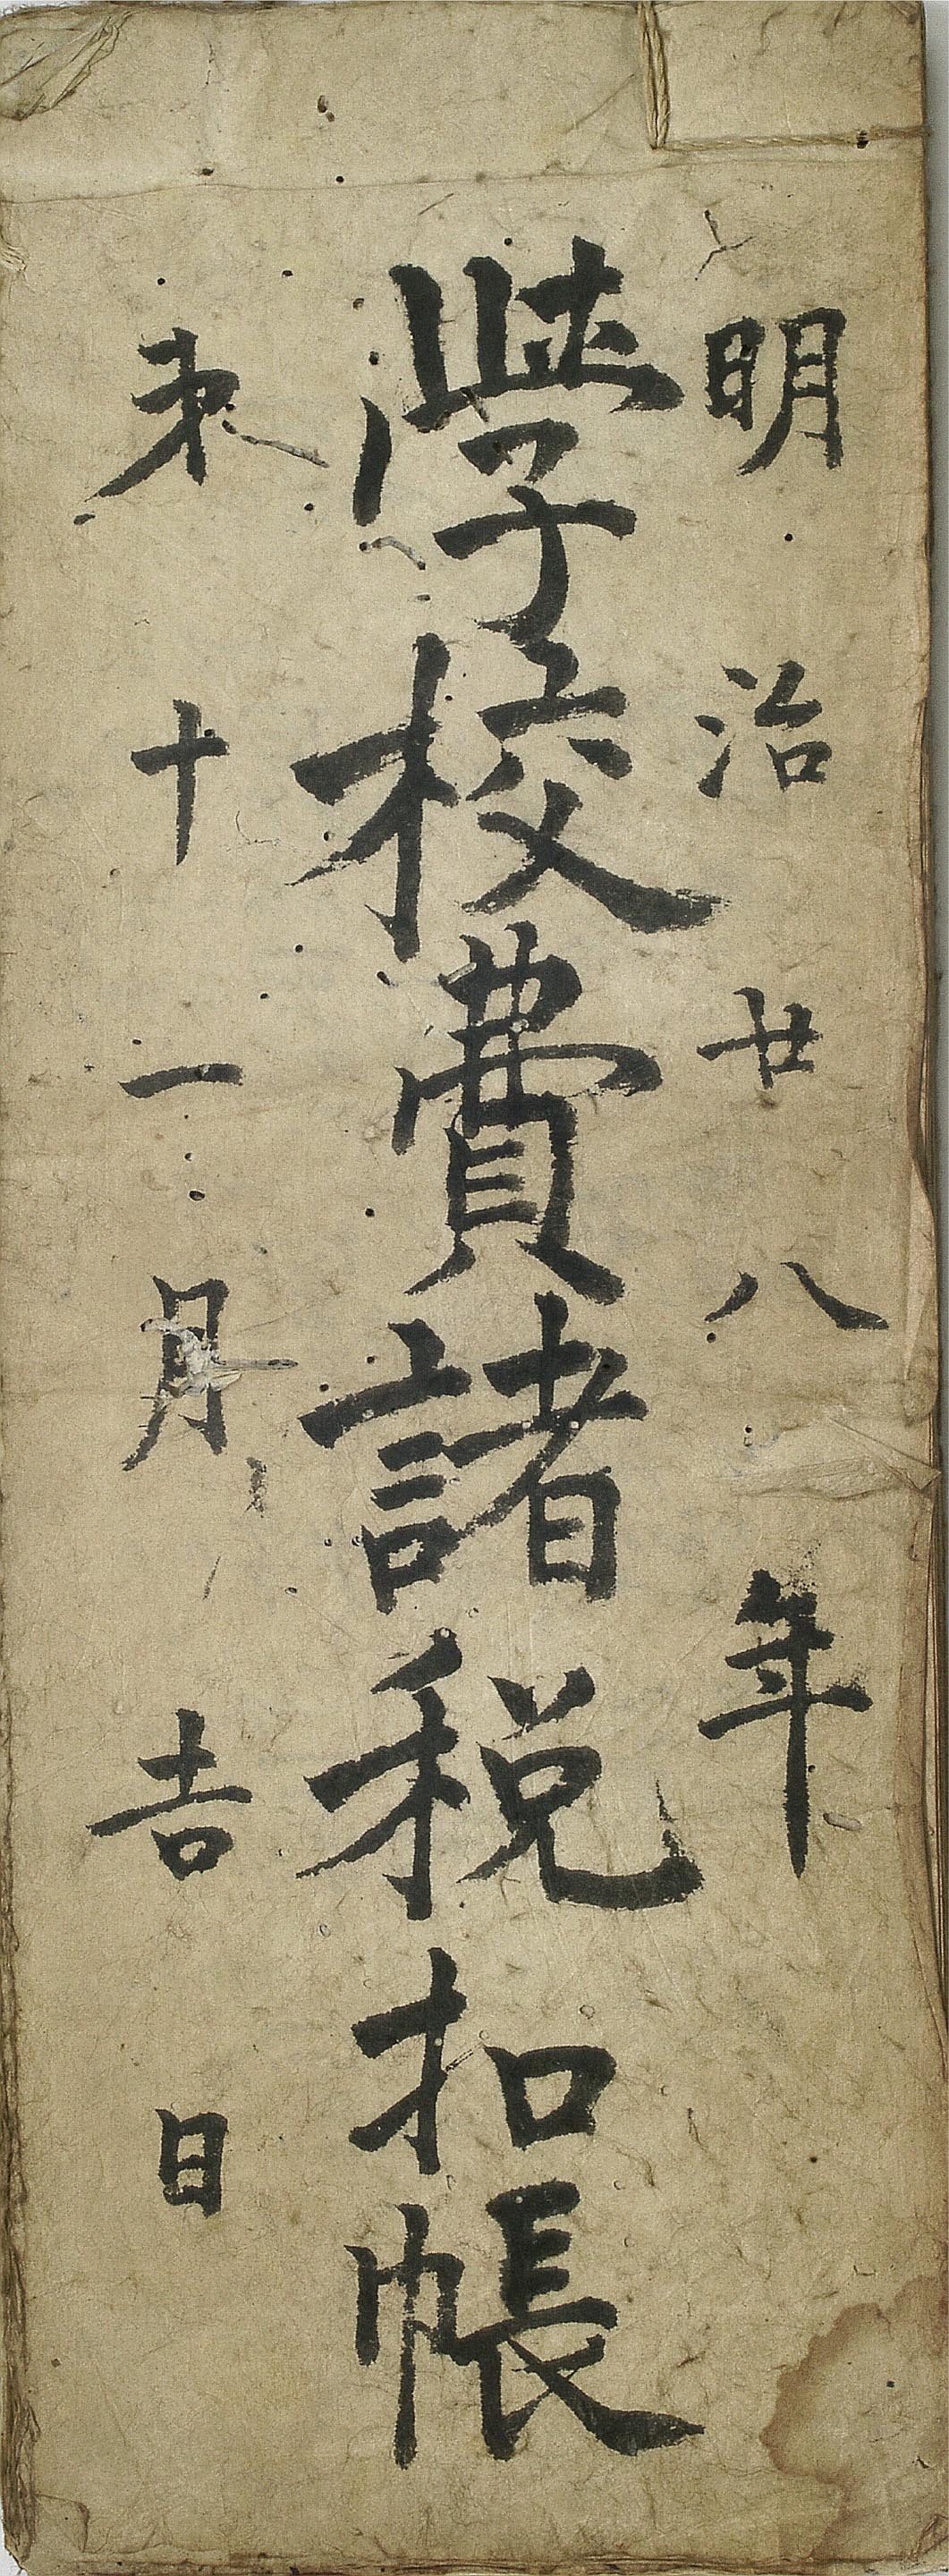 明治廿八年
學校費諸税扣帳
未十一月吉日